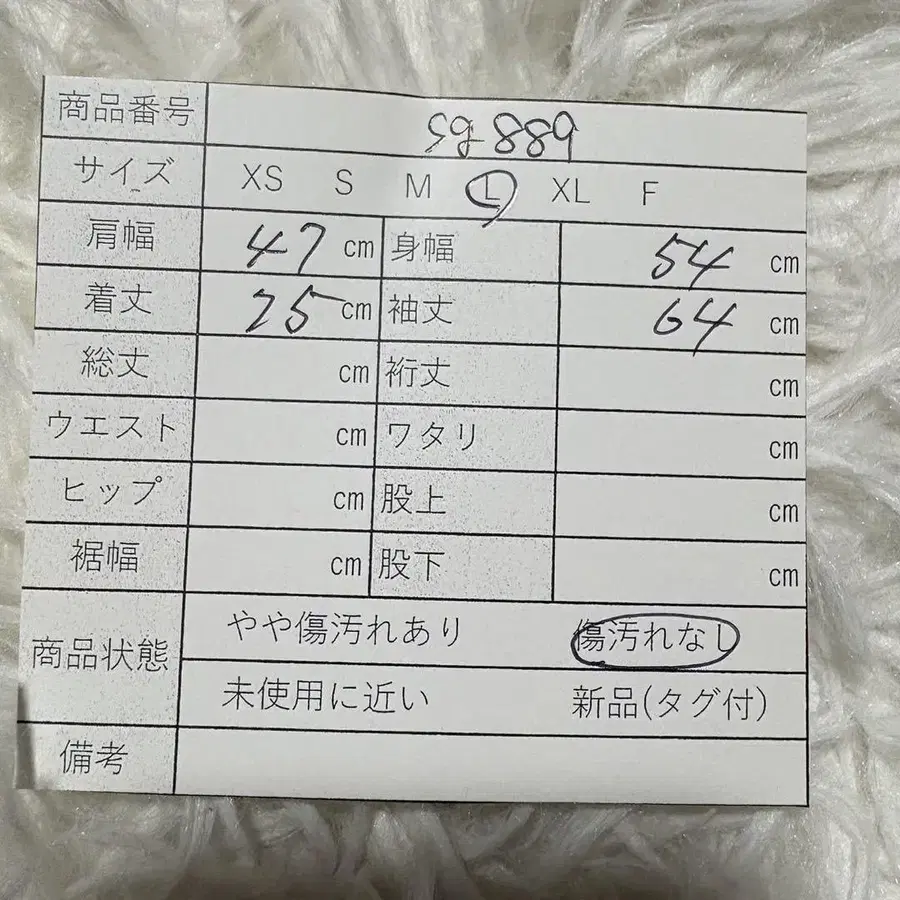 商品番号 sg889
サイズ XS S M L XL F
肩幅 47 cm 身幅 54 cm
着丈 75 cm 袖丈 64 cm
総丈 cm 裄丈 cm
ウエスト cm ワタリ cm
ヒップ cm 股上 cm
裾幅 cm 股下 cm
商品状態 やや傷汚れあり 傷汚れなし
未使用に近い 新品(タグ付)
備考